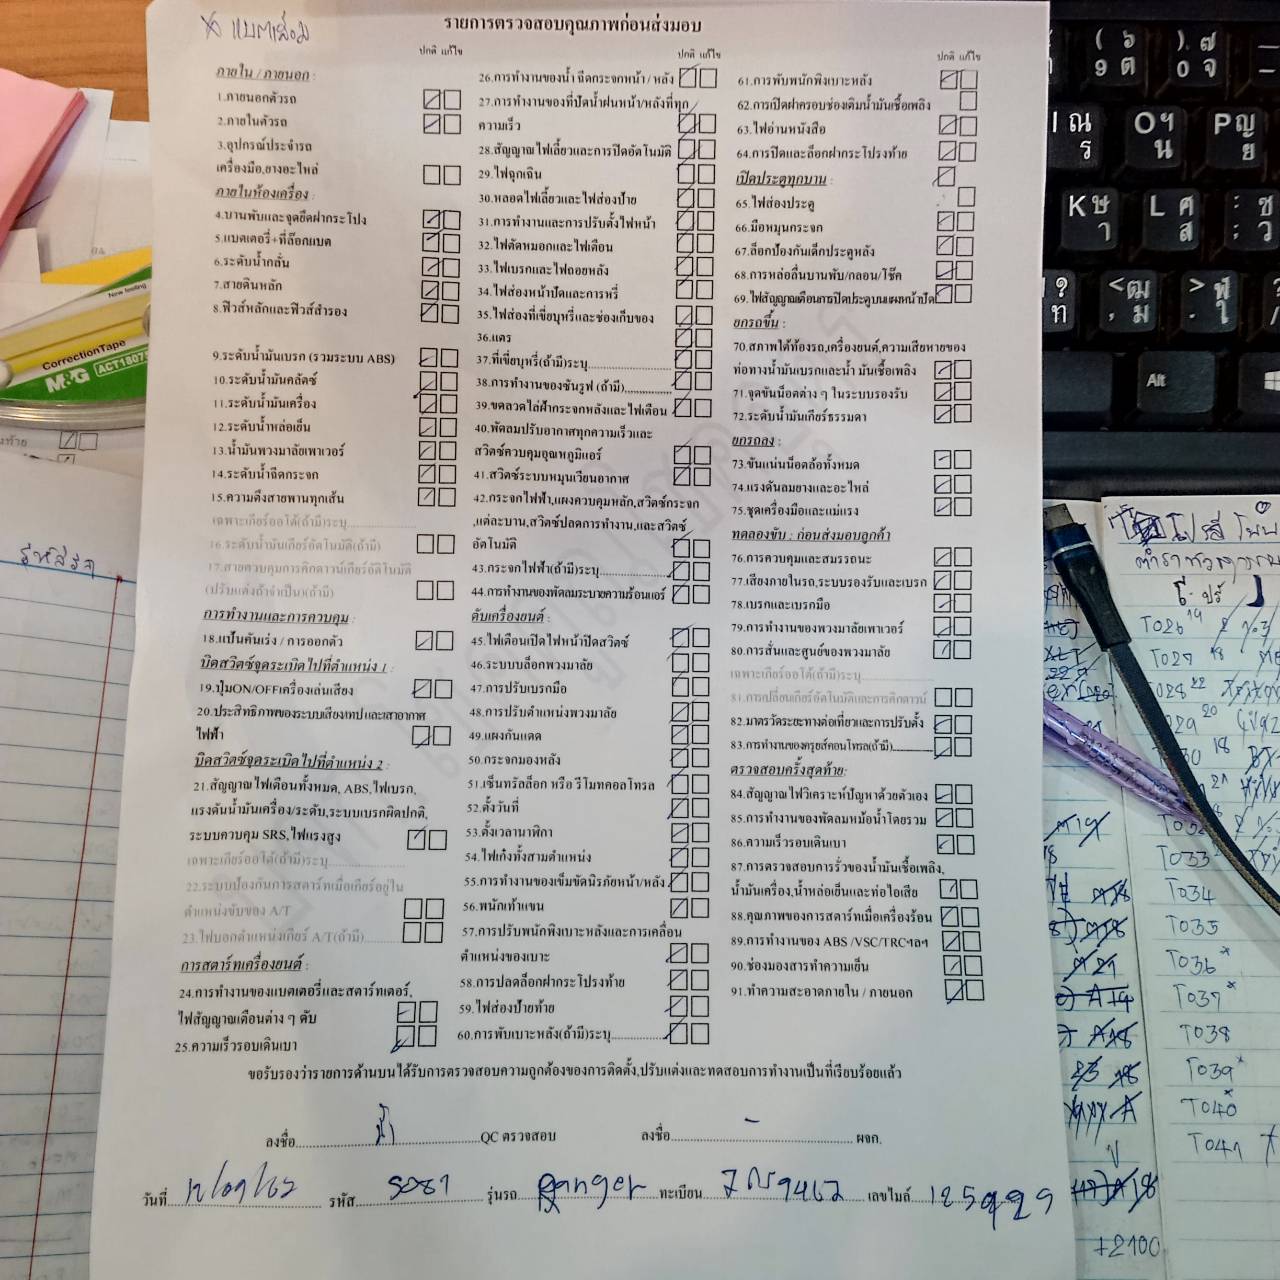 X แบตเสื่อม
รายการตรวจสอบคุณภาพก่อนส่งมอบ
ปกติ แก้ไข
ภายใน / ภายนอก :
1.ภายนอกตัวรถ
2.ภายในตัวรถ
3.อุปกรณ์ประจำรถ
เครื่องมือ,ยางอะไหล่
ภายในห้องเครื่อง :
4.บานพับและจุดยึดฝากระโปง
5.แบตเตอรี่+ที่ล็อกแบต
6.ระดับน้ำกลั่น
7.สายดินหลัก
8.ฟิวส์หลักและฟิวส์สำรอง
9.ระดับน้ำมันเบรก (รวมระบบ ABS)
10.ระดับน้ำมันคลัตช์
11.ระดับน้ำมันเครื่อง
12.ระดับน้ำหล่อเย็น
13.น้ำมันพวงมาลัยเพาเวอร์
14.ระดับน้ำฉีดกระจก
15.ความตึงสายพานทุกเส้น
เฉพาะเกียร์ออโต้(ถ้ามี)ระบุ
16.ระดับน้ำมันเกียร์อัตโนมัติ(ถ้ามี)
17.สายควบคุมการคิกดาวน์เกียร์อัตโนมัติ
(ปรับแต่งถ้าจำเป็น)(ถ้ามี)
การทำงานและการควบคุม :
18.แป้นคันเร่ง / การออกตัว
บิดสวิตซ์จุดระเบิดไปที่ตำแหน่ง 1 :
19.ปุ่มON/OFFเครื่องเล่นเสียง
20.ประสิทธิภาพของระบบเสียงเทปและเสาอากาศ
ไฟฟ้า
บิดสวิตซ์จุดระเบิดไปที่ตำแหน่ง 2 :
21.สัญญาณไฟเตือนทั้งหมด, ABS,ไฟเบรก,
แรงดันน้ำมันเครื่อง/ระดับ,ระบบเบรกผิดปกติ,
ระบบควบคุม SRS,ไฟแรงสูง
เฉพาะเกียร์ออโต้(ถ้ามี)ระบุ
22.ระบบป้องกันการสตาร์ทเมื่อเกียร์อยู่ใน
ตำแหน่งขับของ A/T
23.ไฟบอกตำแหน่งเกียร์ A/T(ถ้ามี)
การสตาร์ทเครื่องยนต์ :
24.การทำงานของแบตเตอรี่และสตาร์ทเตอร์,
ไฟสัญญาณเตือนต่าง ๆ ดับ
25.ความเร็วรอบเดินเบา
ปกติ แก้ไข
26.การทำงานของน้ำ ฉีดกระจกหน้า / หลัง
27.การทำงานของที่ปัดน้ำฝนหน้า/หลังที่ทุก
ความเร็ว
28.สัญญาณไฟเลี้ยวและการปิดอัตโนมัติ
29.ไฟฉุกเฉิน
30.หลอดไฟเลี้ยวและไฟส่องป้าย
31.การทำงานและการปรับตั้งไฟหน้า
32.ไฟตัดหมอกและไฟเตือน
33.ไฟเบรกและไฟถอยหลัง
34.ไฟส่องหน้าปัดและการหรี่
35.ไฟส่องที่เขี่ยบุหรี่และช่องเก็บของ
36.แตร
37.ที่เขี่ยบุหรี่(ถ้ามี)ระบุ
38.การทำงานของซันรูฟ (ถ้ามี)
39.ขดลวดไล่ฝ้ากระจกหลังและไฟเตือน
40.พัดลมปรับอากาศทุกความเร็วและ
สวิตซ์ควบคุมอุณหภูมิแอร์
41.สวิตซ์ระบบหมุนเวียนอากาศ
42.กระจกไฟฟ้า,แผงควบคุมหลัก,สวิตซ์กระจก
,แต่ละบาน,สวิตซ์ปลดการทำงาน,และสวิตซ์
อัตโนมัติ
43.กระจกไฟฟ้า(ถ้ามี)ระบุ
44.การทำงานของพัดลมระบายความร้อนแอร์
ดับเครื่องยนต์ :
45.ไฟเตือนเปิดไฟหน้าปิดสวิตซ์
46.ระบบบล็อกพวงมาลัย
47.การปรับเบรกมือ
48.การปรับตำแหน่งพวงมาลัย
49.แผงกันแดด
50.กระจกมองหลัง
51.เซ็นทรัลล็อก หรือ รีโมทคอลโทรล
52.ตั้งวันที่
53.ตั้งเวลานาฬิกา
54.ไฟเก๋งทั้งสามตำแหน่ง
55.การทำงานของเข็มขัดนิรภัยหน้า/หลัง
56.พนักเท้าแขน
57.การปรับพนักพิงเบาะหลังและการเคลื่อน
ตำแหน่งของเบาะ
58.การปลดล็อกฝากระโปรงท้าย
59.ไฟส่องป้ายท้าย
60.การพับเบาะหลัง(ถ้ามี)ระบุ
ปกติ แก้ไข
61.การพับพนักพิงเบาะหลัง
62.การเปิดฝาครอบช่องเติมน้ำมันเชื้อเพลิง
63.ไฟอ่านหนังสือ
64.การปิดและล็อกฝากระโปรงท้าย
เปิดประตูทุกบาน :
65.ไฟส่องประตู
66.มือหมุนกระจก
67.ล็อกป้องกันเด็กประตูหลัง
68.การหล่อลื่นบานพับ/กลอน/โช๊ค
69.ไฟสัญญาณเตือนการปิดประตูบนแผงหน้าปัด
ยกรถขึ้น :
70.สภาพใต้ท้องรถ,เครื่องยนต์,ความเสียหายของ
ท่อทางน้ำมันเบรกและน้ำ มันเชื้อเพลิง
71.จุดขันน็อตต่าง ๆ ในระบบรองรับ
72.ระดับน้ำมันเกียร์ธรรมดา
ยกรถลง :
73.ขันแน่นน็อตล้อทั้งหมด
74.แรงดันลมยางและอะไหล่
75.ชุดเครื่องมือและแม่แรง
ทดลองขับ : ก่อนส่งมอบลูกค้า
76.การควบคุมและสมรรถนะ
77.เสียงภายในรถ,ระบบรองรับและเบรก
78.เบรกและเบรกมือ
79.การทำงานของพวงมาลัยเพาเวอร์
80.การสั่นและศูนย์ของพวงมาลัย
เฉพาะเกียร์ออโต้(ถ้ามี)ระบุ
81.การเปลี่ยนเกียร์อัตโนมัติและการคิกดาวน์
82.มาตรวัดระยะทางต่อเที่ยวและการปรับตั้ง
83.การทำงานของครุยส์คอนโทรล(ถ้ามี)
ตรวจสอบครั้งสุดท้าย:
84.สัญญาณไฟวิเคราะห์ปัญหาด้วยตัวเอง
85.การทำงานของพัดลมหม้อน้ำโดยรวม
86.ความเร็วรอบเดินเบา
87.การตรวจสอบการรั่วของน้ำมันเชื้อเพลิง,
น้ำมันเครื่อง,น้ำหล่อเย็นและท่อไอเสีย
88.คุณภาพของการสตาร์ทเมื่อเครื่องร้อน
89.การทำงานของ ABS /VSC/TRCฯลฯ
90.ช่องมองสารทำความเย็น
91.ทำความสะอาดภายใน / ภายนอก
ขอรับรองว่ารายการด้านบนได้รับการตรวจสอบความถูกต้องของการติดตั้ง,ปรับแต่งและทดสอบการทำงานเป็นที่เรียบร้อยแล้ว
ลงชื่อ QC ตรวจสอบ ลงชื่อ - ผจก.
วันที่ 12/09/62 รหัส S081 รุ่นรถ Ranger ทะเบียน 9467 เลขไมล์ 125929
New feeling
CorrectionTape
M&G ACT1807
Alt
T026
T027
T028
T033
T034
T035
T036*
T037*
T038
T039*
T040*
T041
+2100